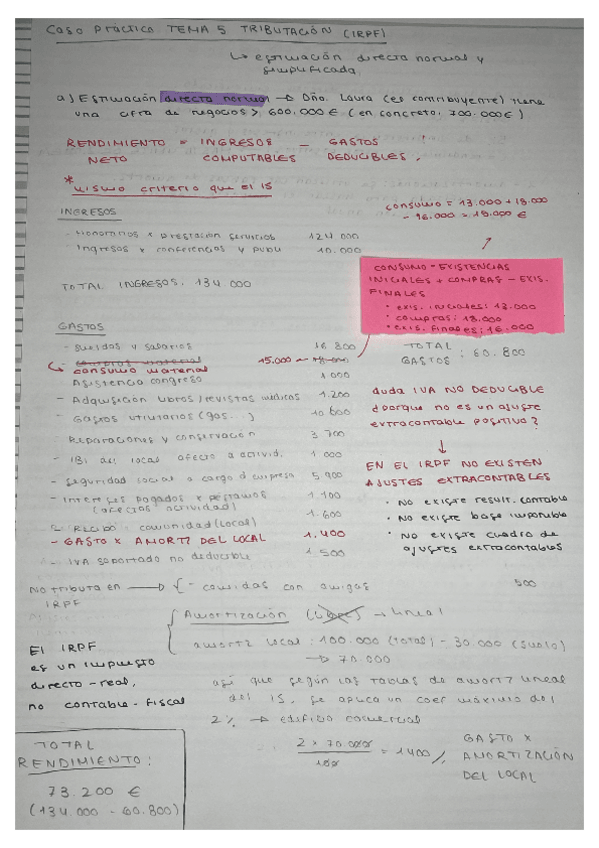 Caso Práctico TEMA 5 TRIBUTACIÓN (IRPF)
↳ estimación directa normal y
simplificada.
a) Estimación directa normal → Dña. Laura (es contribuyente) tiene
una cifra de negocios > 600.000 € (en concreto, 700.000€)
RENDIMIENTO = INGRESOS - GASTOS
NETO COMPUTABLES DEDUCIBLES.
* Mismo criterio que el IS
INGRESOS
- Honorarios x prestación servicios 124 000
- Ingresos x conferencias y publi 10.000
TOTAL INGRESOS. 134.000
consumo = 13.000 + 18.000
- 16.000 = 15.000 €
CONSUMO - EXISTENCIAS
INICIALES + COMPRAS - EXIS.
FINALES
· exis. iniciales: 13.000
· compras: 18.000
· exis. finales: 16.000
GASTOS
- Sueldos y salarios 16 800
↳ consumo material 15.000
Asistencia congreso 1 000
- Adquisición libros/revistas médicos 1.200
- Gastos utilitarios (gas...) 10 600
Reparaciones y conservación 3 700
- IBI del local afecto a activid. 1 000
- Seguridad social a cargo d empresa 5 900
- Intereses pagados x préstamos 1.100
(afectos actividad)
2 Recibo comunidad (local) 1.600
- GASTO X AMORTZ DEL LOCAL 1.400
- IVA soportado no deducible 1 500
TOTAL
GASTOS : 60.800
duda IVA NO DEDUCIBLE
¿porque no es un ajuste
extracontable positivo?
↓
EN EL IRPF NO EXISTEN
AJUSTES EXTRACONTABLES
· No existe result. contable
· No existe base imponible
· No existe cuadro de
ajustes extracontables
No tributa en → { - comidas con amigas 500
IRPF
Amortización (libre) → lineal
amortz local : 100.000 (total) - 30.000 (suelo)
→ 70.000
así que según las tablas de amortz lineal
del IS, se aplica un coef máximo del
2% → edificio comercial
2 x 70.000 / 100 = 1400 //
GASTO X
AMORTIZACIÓN
DEL LOCAL
El IRPF
es un impuesto
directo - real,
no contable - fiscal
TOTAL
RENDIMIENTO:
73.200 €
(134.000 - 60.800)